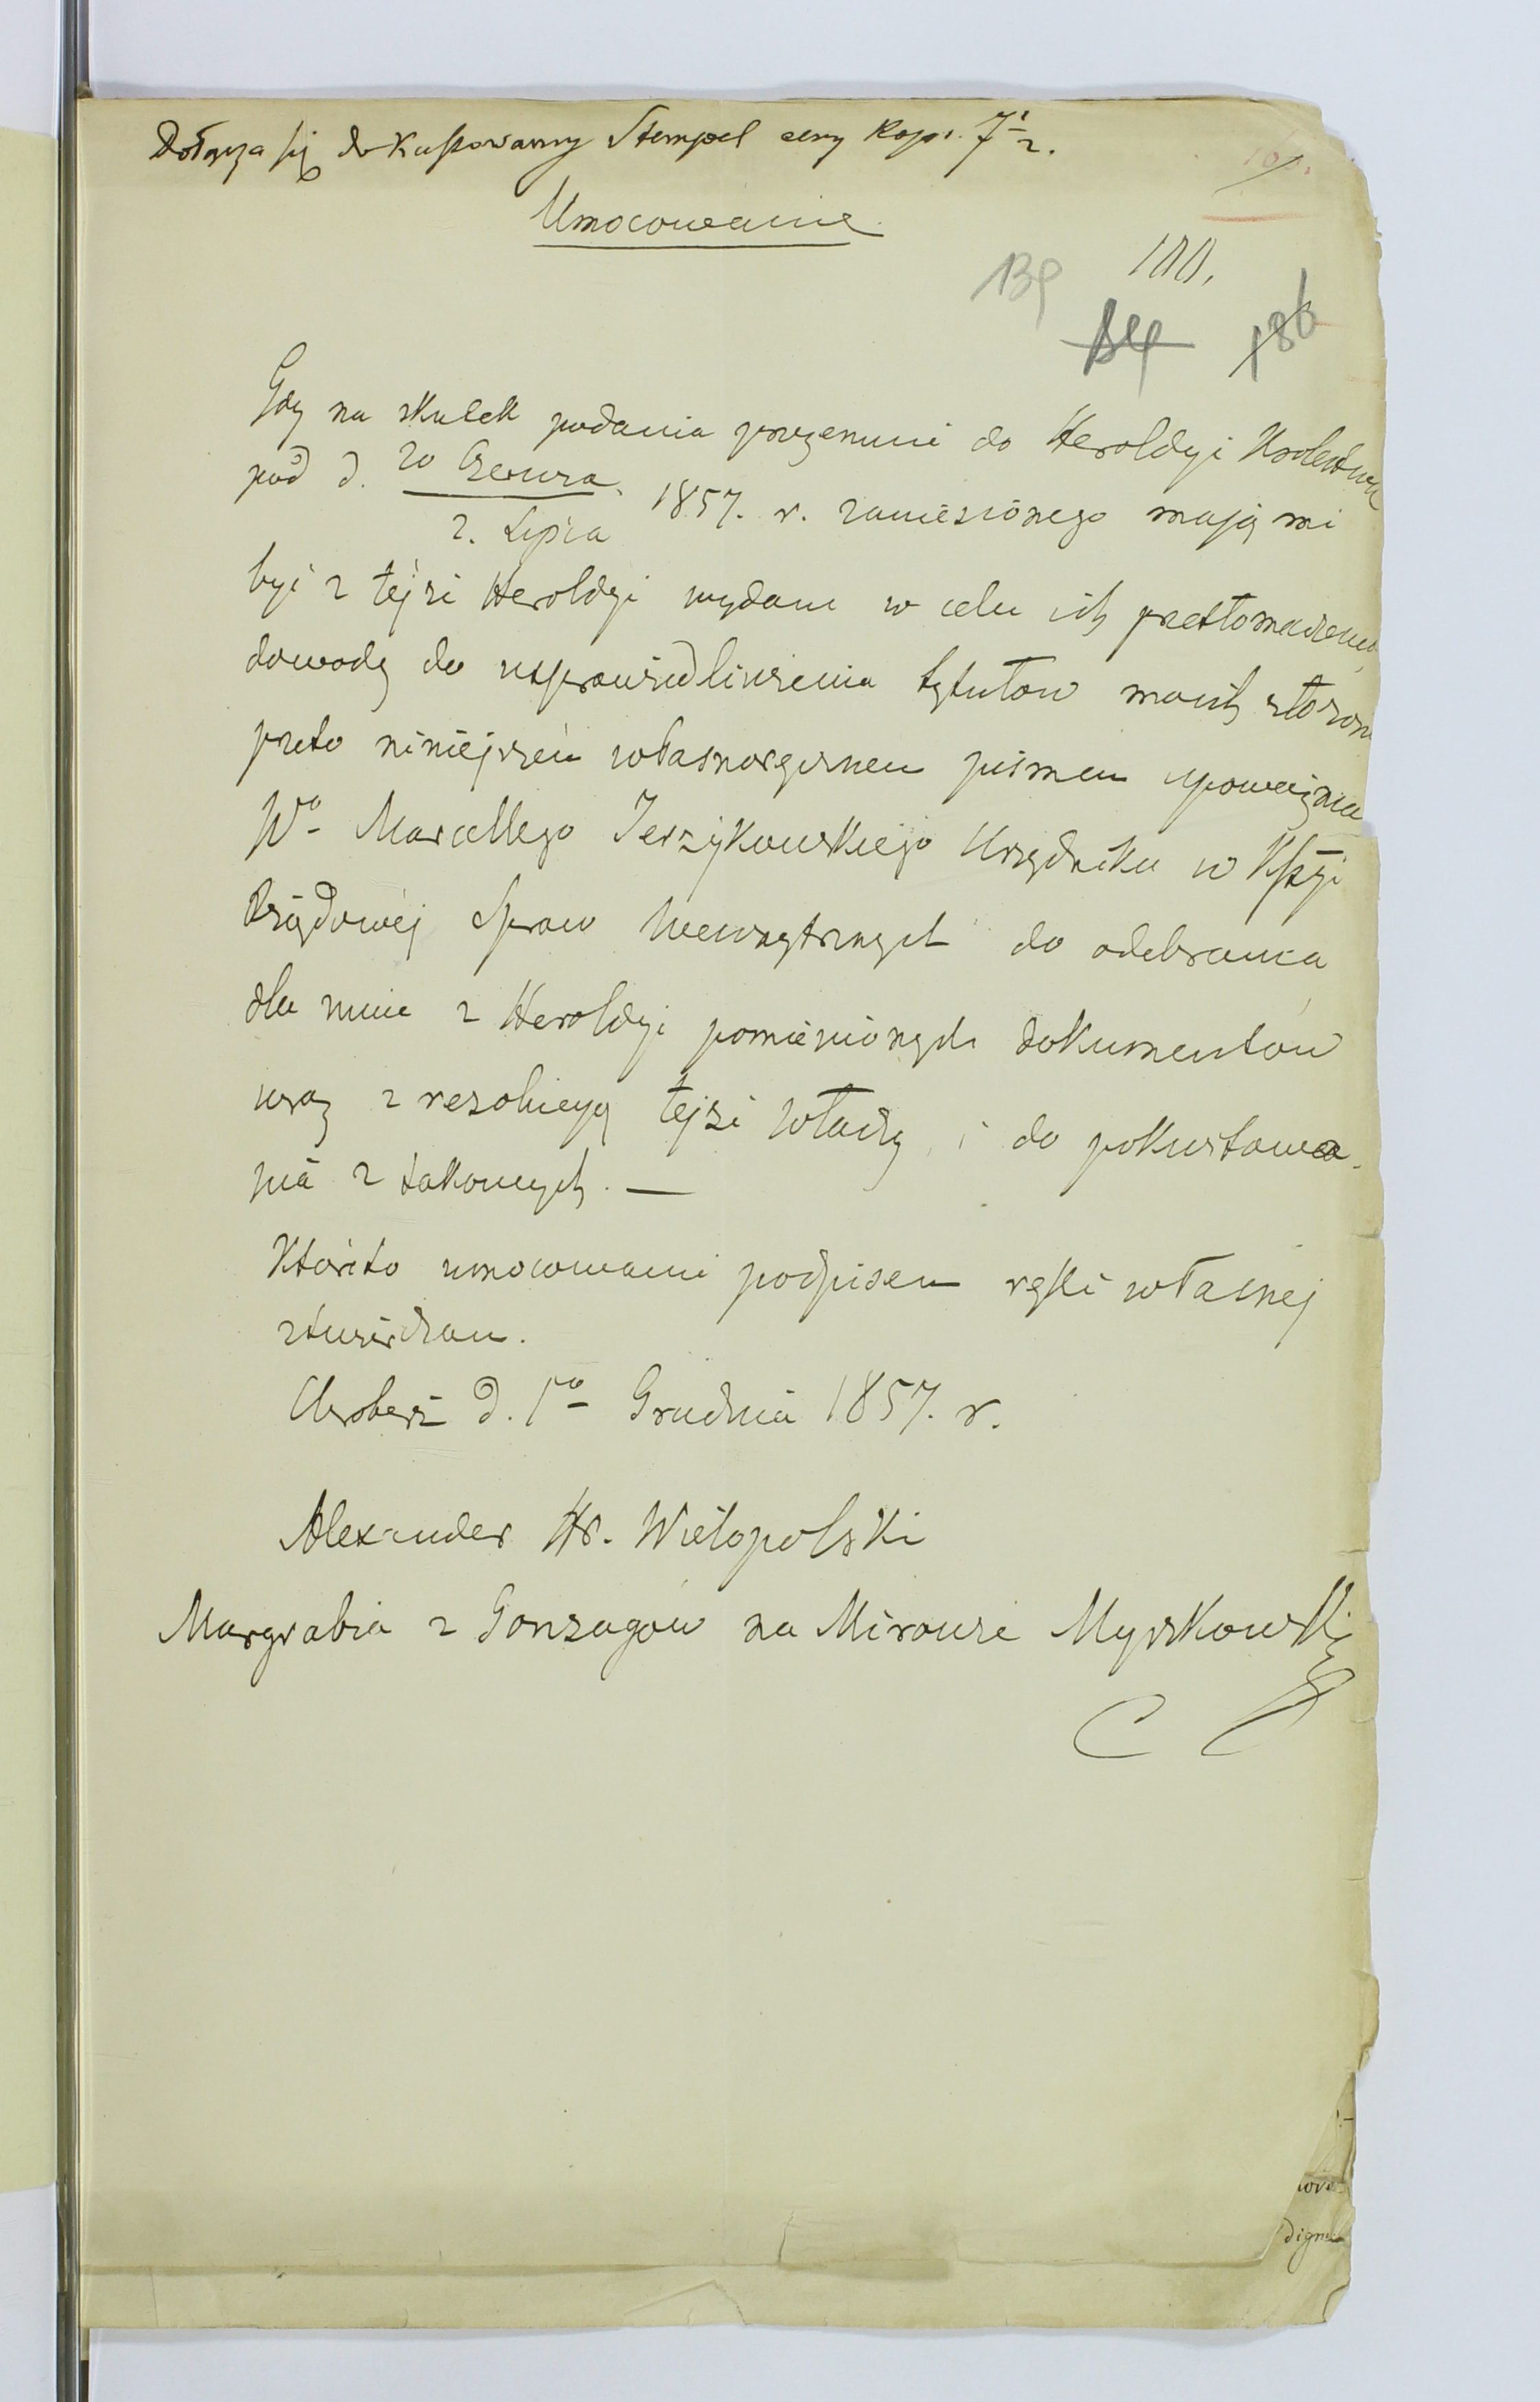 Dołącza się do Kassowany Stempel ceny Kop. 7 1/2.
Umocowanie
100.
139
186
Gdy na skutek podania przezemnie do Heroldyi Królestwa
pod d. 20 Czerwca
2. Lipca 1857. r. zaniesionego mają mi
być z tejże Heroldyi wydane w celu ich przetłomaczenia,
dowody do usprawiedliwienia tytułów moich złożone
przeto niniejszém własnoręcznem pismem upoważniam
Wo Marcellego Jeszykowskiego Urzędnika w Kssyi
Rządowéj Spraw Wewnętrznych do odebrania
dla mnie z Heroldyi pomienionych dokumentów
wraz z rezolucyą tejże Władzy, i do pokwitowa-
nia z takowych. —
Któreto umocowanie podpisem ręki własnej
stwierdzam.
Chroberz d. 1o Grudnia 1857. r.
Alexander Hr. Wielopolski
Margrabia z Gonzagów na Mirowie Myszkowski